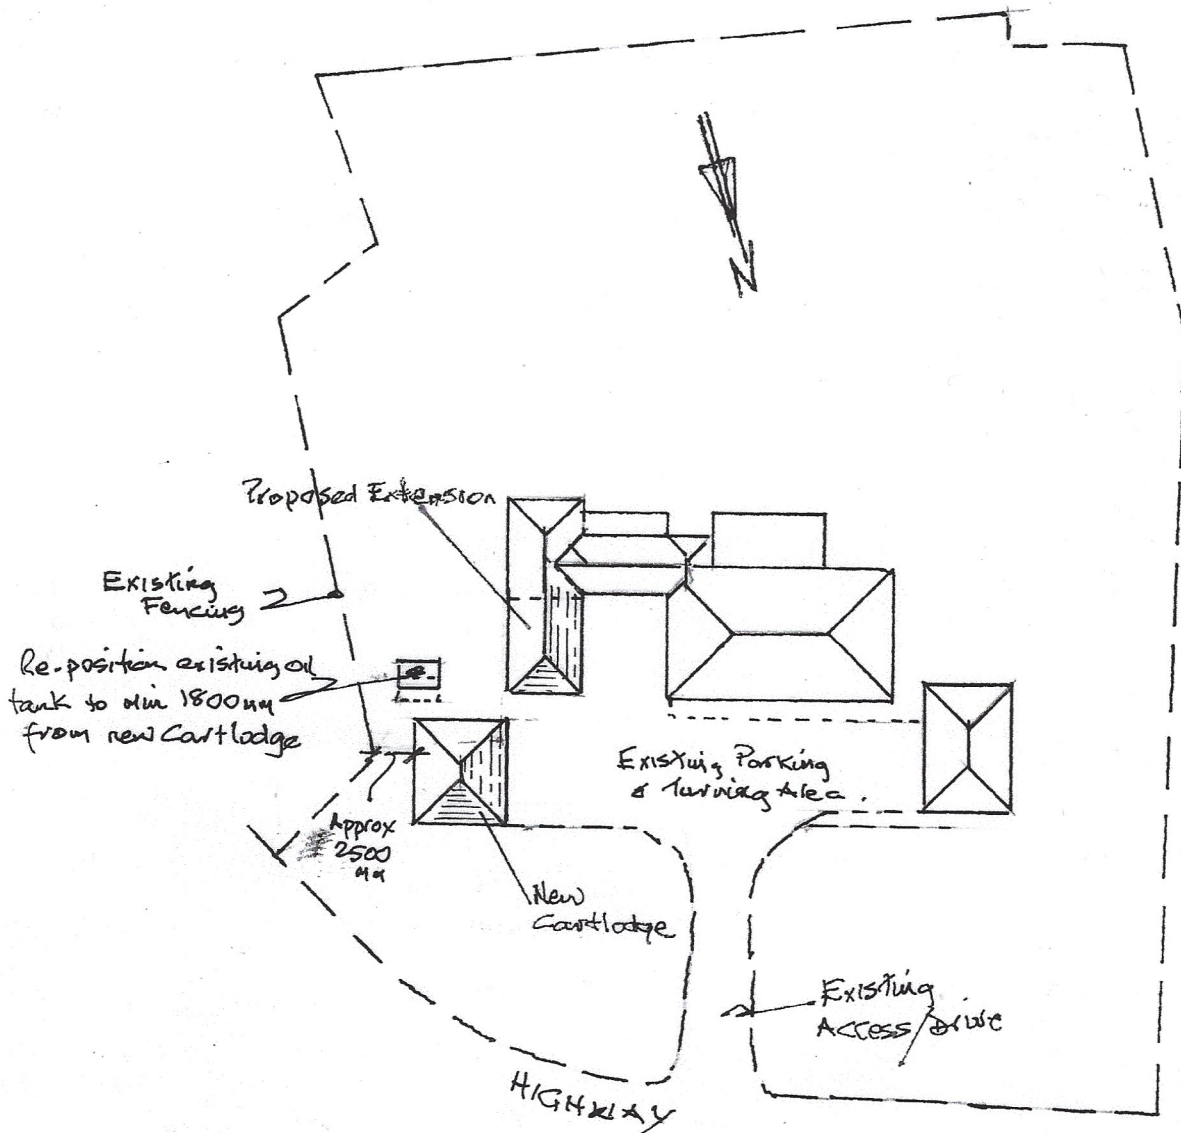 N
Proposed Extension
Existing
Fencing
Re-position existing oil
tank to min 1800mm
from new Cartlodge
Existing Parking
& Turning Area.
Approx
2500
mm
New
Cartlodge
Existing
Access/Drive
HIGHWAY